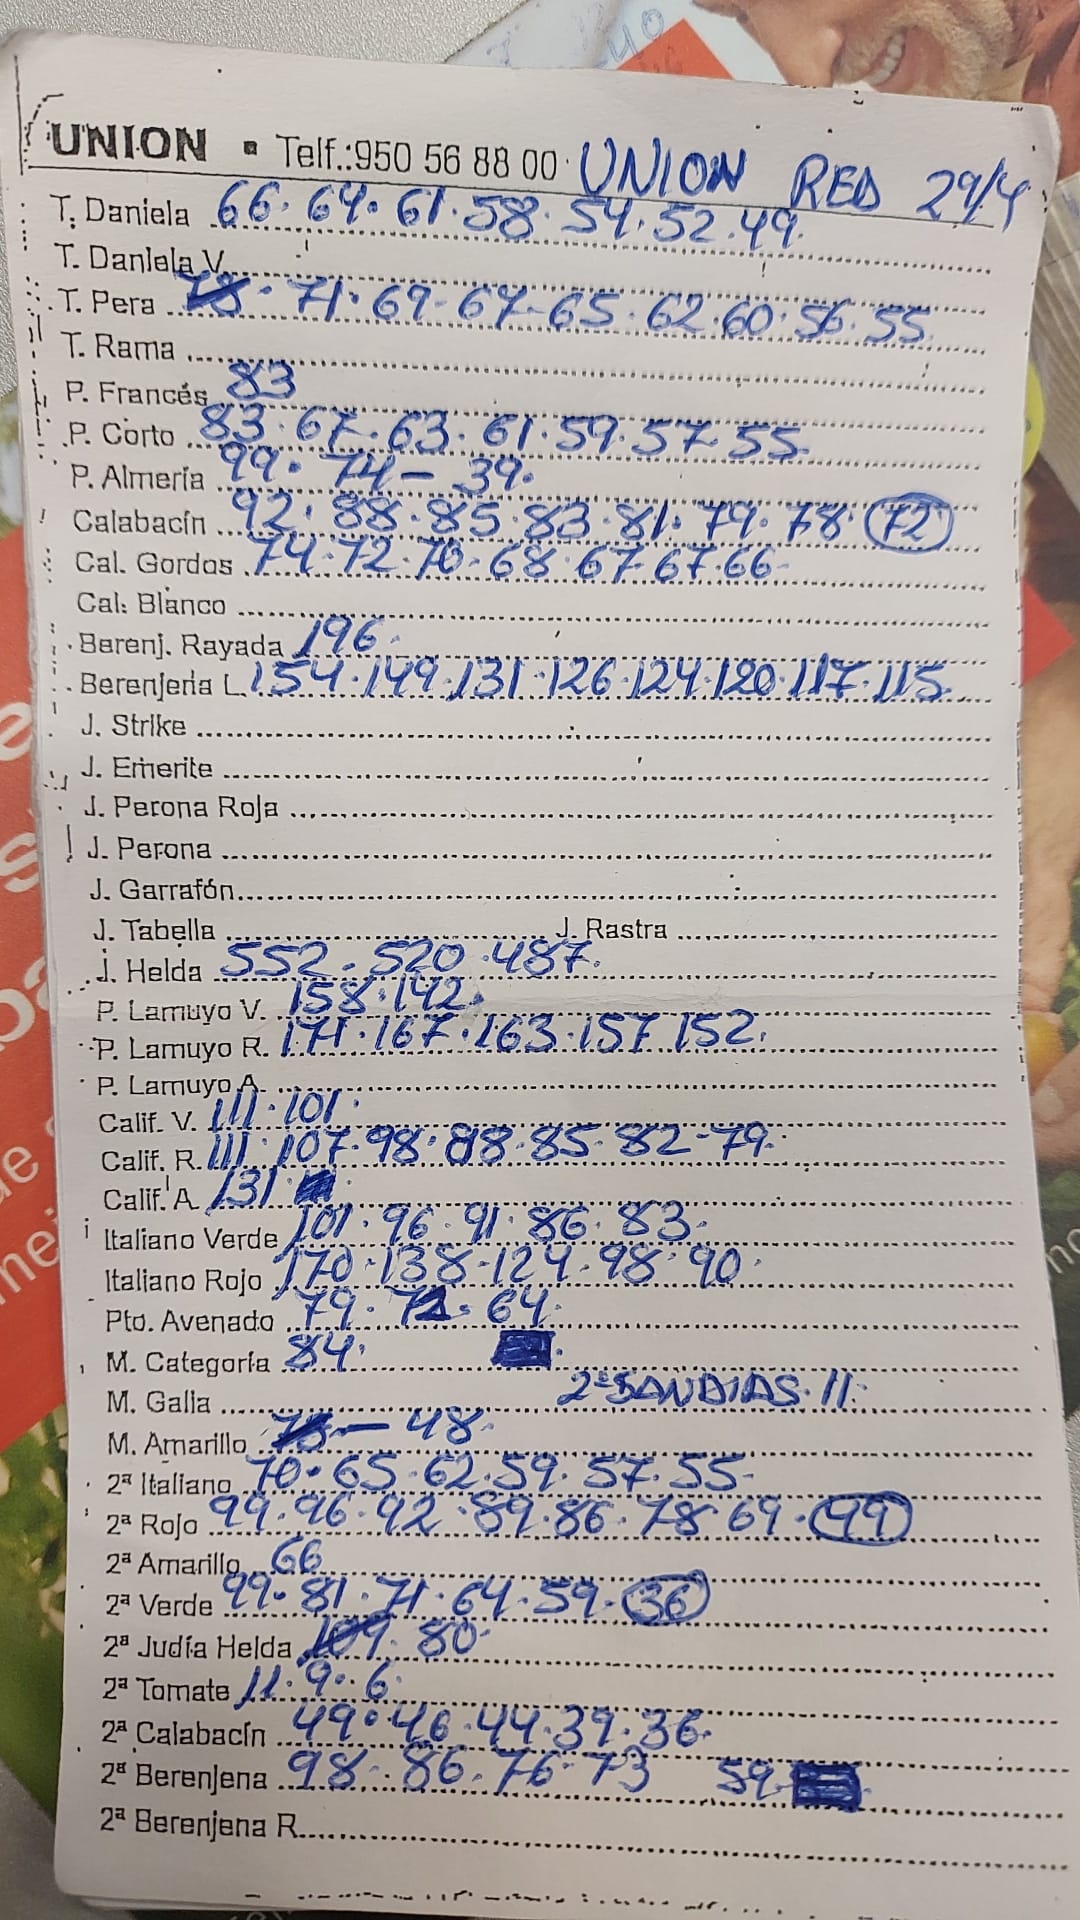 UNION ▪ Telf.:950 56 88 00 · UNION RED 29/4
T. Daniela 66. 64. 61. 58. 54. 52. 49.
T. Daniela V.
T. Pera 71. 69- 67- 65. 62. 60. 56. 55
T. Rama
P. Francés 83
P. Corto 83. 67. 63. 61. 59. 57. 55
P. Almería 99. 74 - 39.
Calabacín 92. 88. 85. 83. 81. 79. 78. 72
Cal. Gordos 74. 72. 70. 68. 67. 67. 66-
Cal. Blanco
Berenj. Rayada 196.
Berenjena L. 154. 149. 131. 126. 124. 120. 117. 115
J. Strike
J. Emerite
J. Perona Roja
J. Perona
J. Garrafón
J. Tabella J. Rastra
J. Helda 552. 520. 487.
P. Lamuyo V. 158. 142.
P. Lamuyo R. 171. 167. 163. 157 152.
P. Lamuyo A.
Calif. V. 111. 101.
Calif. R. 111. 107. 98. 88. 85. 82 - 79.
Calif. A. 131.
Italiano Verde 101. 96. 91. 86. 83.
Italiano Rojo 170. 138. 124. 98. 90.
Pto. Avenado 79. 72. 64.
M. Categoría 84.
M. Galia 2ª SANDIAS. 11.
M. Amarillo - 48.
2ª Italiano 70. 65. 62. 59. 57. 55-
2ª Rojo 99. 96. 92. 89. 86. 78. 69. 99
2ª Amarillo 66
2ª Verde 99. 81. 71. 64. 59. 36
2ª Judía Helda 80.
2ª Tomate 11. 9. 6.
2ª Calabacín 49. 46. 44. 39. 36.
2ª Berenjena 98. 86. 76. 73 59.
2ª Berenjena R.